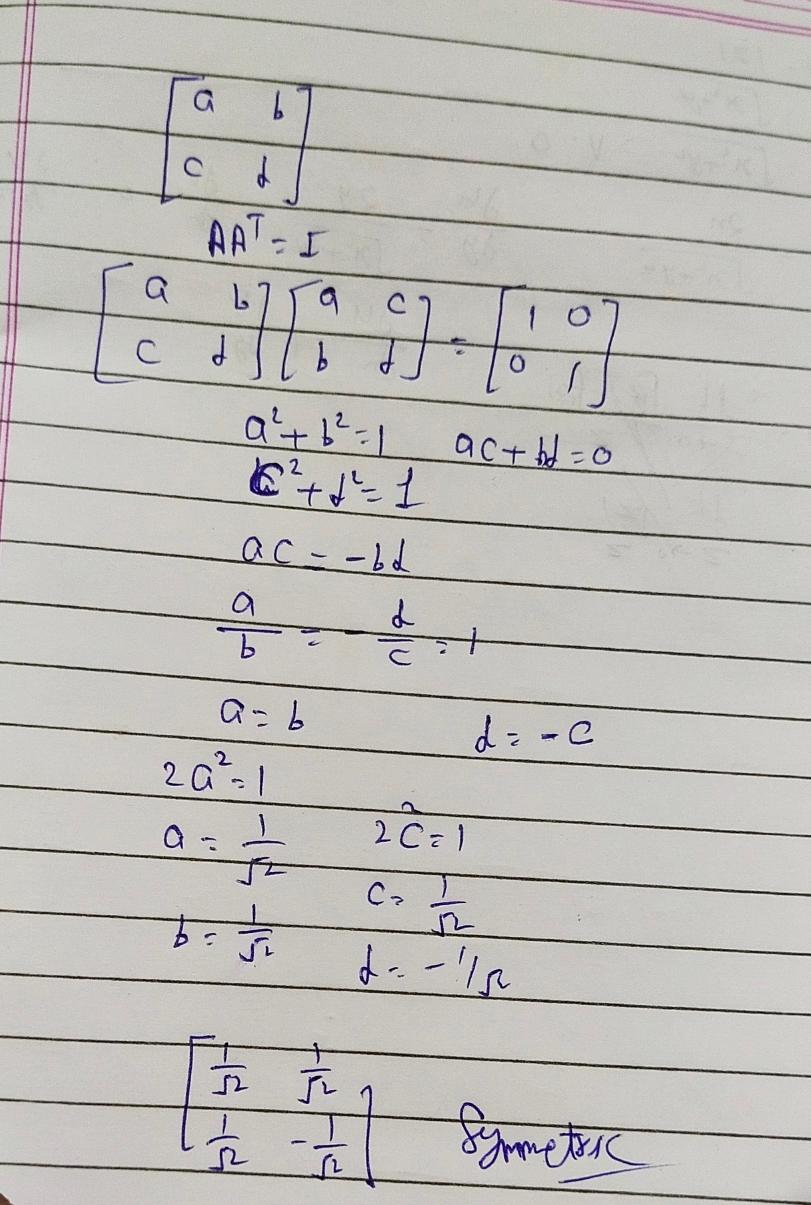 [a b
c d]
AAᵀ = I
[a b
c d] [a c
b d] = [1 0
0 1]
a² + b² = 1 ac + bd = 0
c² + d² = 1
ac = -bd
a/b = -d/c = 1
a = b d = -c
2a² = 1
a = 1/√2 2c² = 1
c = 1/√2
b = 1/√2
d = -1/√2
[1/√2 1/√2
1/√2 -1/√2] Symmetric